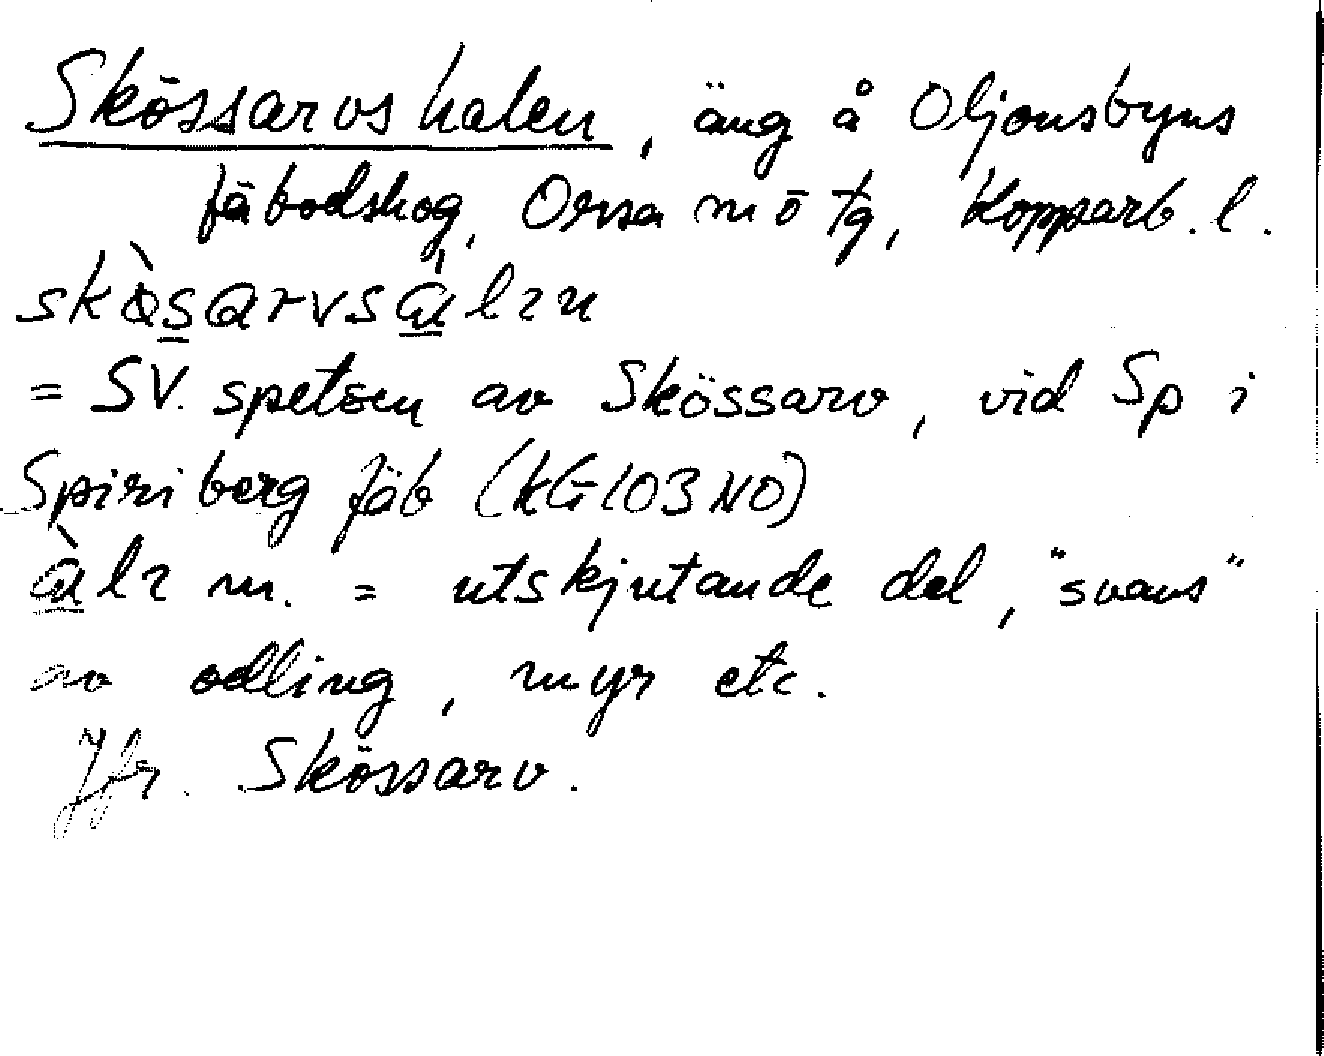 Skössarvshalen, äng å Oljonsbyns
fäbodskog, Orsa m ö tg, Kopparb. l.
= SV. spetsen av Skössarv, vid Sp i
Spiriberg fäb (KG103NO)
m. = utskjutande del, "svans"
av odling, myr etc.
Jfr. Skössarv.